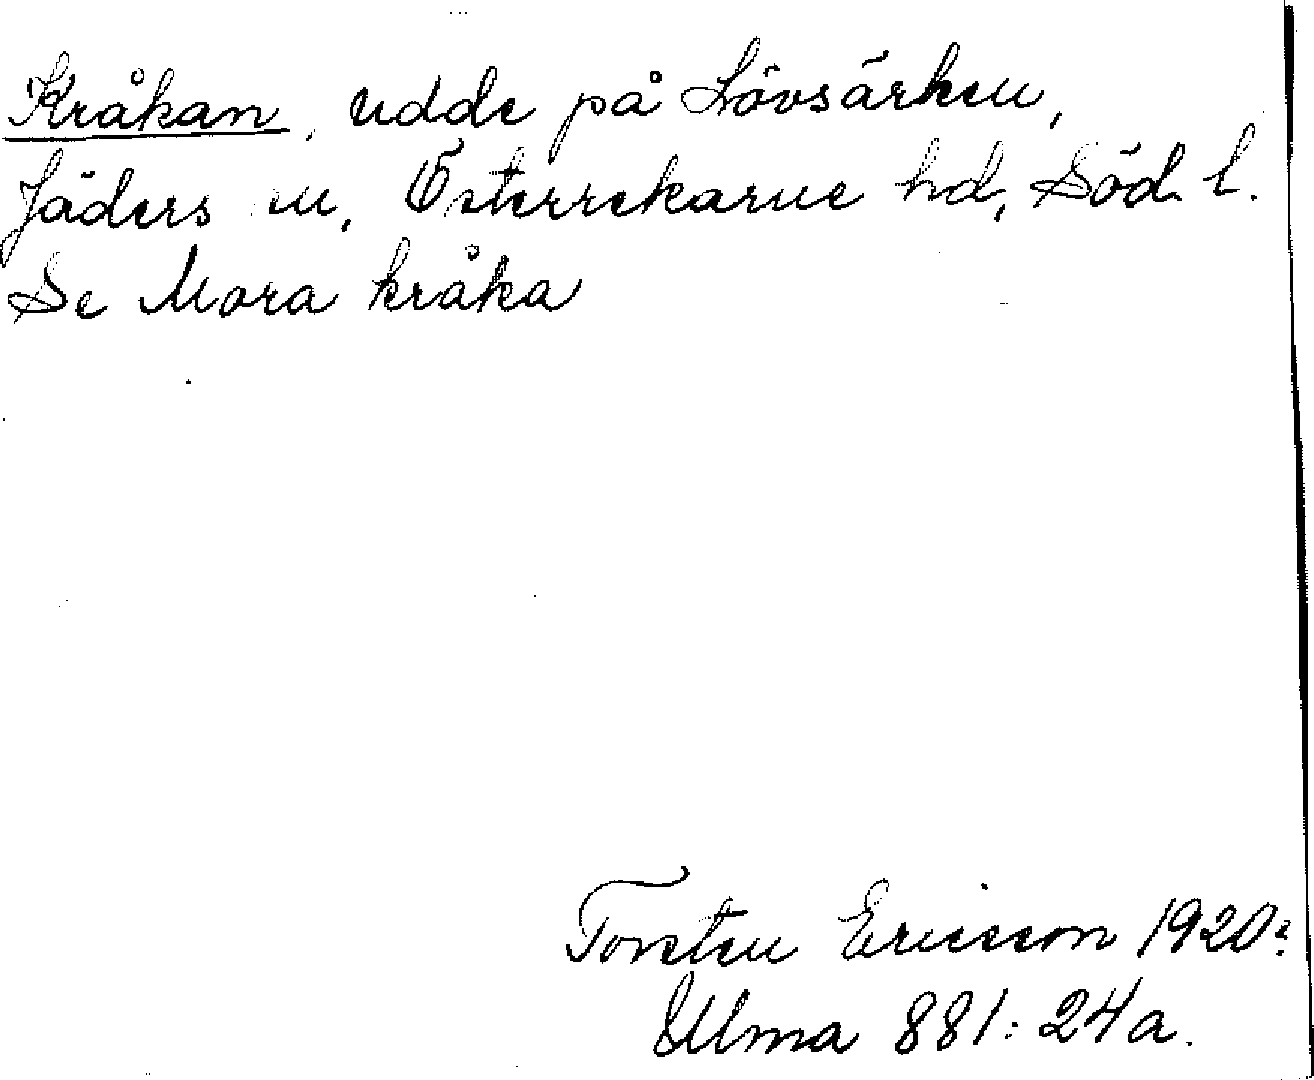 Kråkan, udde på Lövsärken,
Jäders sn, Österrekarne hd, Söd. l.
Se Mora kråka
Torsten Ericsson 1920?
Ulma 881:24a.